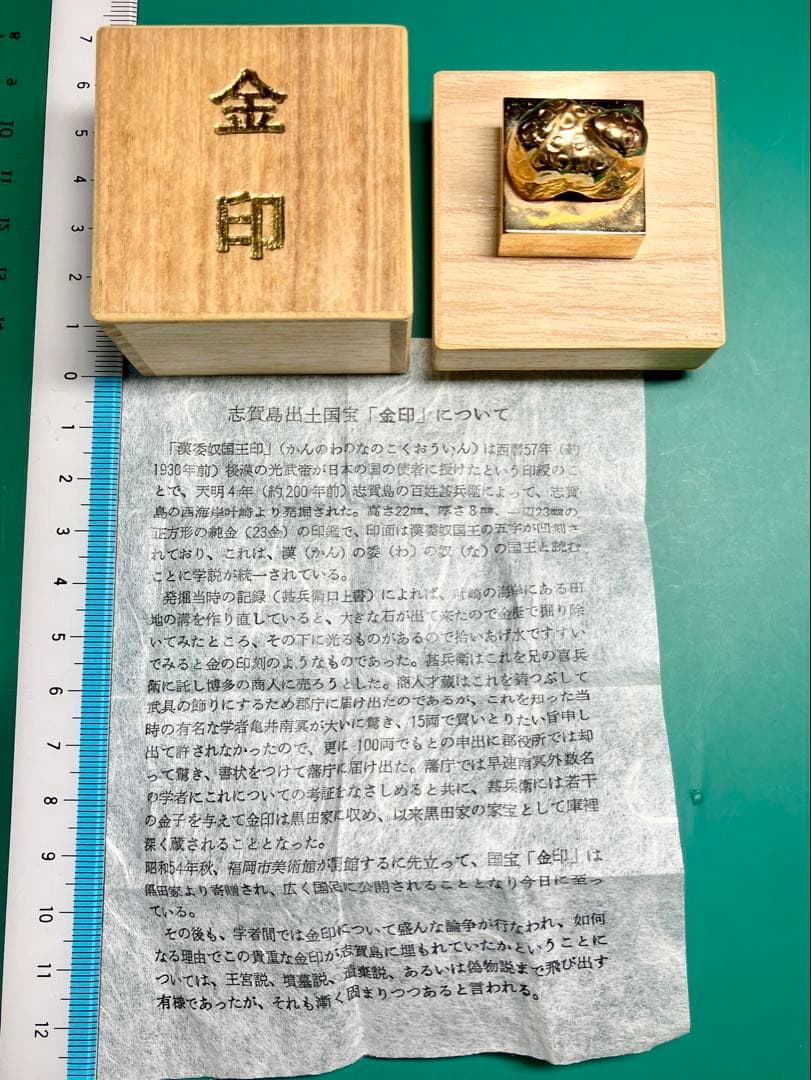 金
印
志賀島出土国宝「金印」について
「漢委奴国王印」(かんのわのなのこくおういん)は西暦57年(約
1930年前)後漢の光武帝が日本の国の使者に授けたという印綬のこ
とで、天明4年(約200年前)志賀島の百姓甚兵衛によって、志賀
島の西海岸叶崎より発掘された。高さ22㎜、厚さ8㎜、一辺23㎜の
正方形の純金(23金)の印鑑で、印面は漢委奴国王の五字が凹刻さ
れており、これは、漢(かん)の委(わ)の奴(な)の国王と読む
ことに学説が統一されている。
発掘当時の記録(甚兵衛口上書)によれば、叶崎の海岸にある田
地の溝を作り直していると、大きな石が出て来たので金梃で掘り除
いてみたところ、その下に光るものがあるので拾いあげ水ですすい
でみると金の印刻のようなものであった。甚兵衛はこれを兄の喜兵
衛に託し博多の商人に売ろうとした。商人才蔵はこれを鋳つぶして
武具の飾りにするため郡庁に届け出たのであるが、これを知った当
時の有名な学者亀井南冥が大いに驚き、15両で買いとりたい旨申し
出て許されなかったので、更に100両でもとの申出に郡役所では却
って驚き、書状をつけて藩庁に届け出た。藩庁では早速南冥外数名
の学者にこれについての考証をなさしめると共に、甚兵衛には若干
の金子を与えて金印は黒田家に収め、以来黒田家の家宝として庫裡
深く蔵されることとなった。
昭和54年秋、福岡市美術館が開館するに先立って、国宝「金印」は
黒田家より寄贈され、広く国民に公開されることとなり今日に至っ
ている。
その後も、学者間では金印について盛んな論争が行なわれ、如何
なる理由でこの貴重な金印が志賀島に埋もれていたかということに
ついては、王宮説、墳墓説、遺棄説、あるいは偽物説まで飛び出す
有様であったが、それも漸く固まりつつあると言われる。
7
6
5
4
3
2
1
0
1
2
3
4
5
6
7
8
9
10
11
12
8
9
10
11
12
13